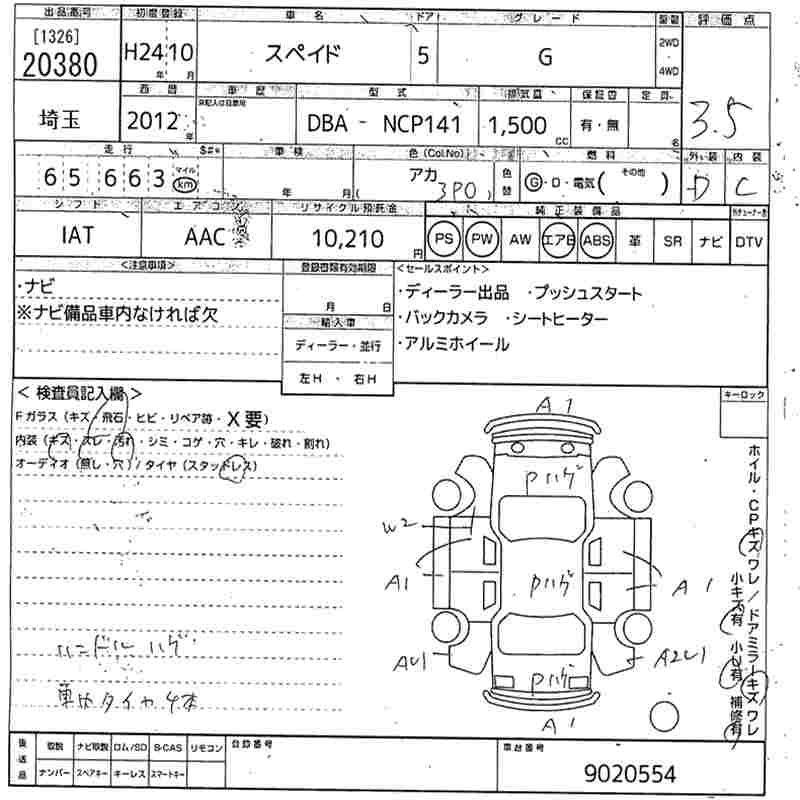 出品番号 初度登録 車名 ドア グレード 駆動 評価点
[1326] 20380 H24 10 年 月 スペイド 5 G 2WD 4WD 3.5
西暦 車歴 型式 排気量 保証書 定員
埼玉 2012年 DBA - NCP141 1,500 cc 有・無 名
走行 $#* 車検 色(Col No) 燃料 外装 内装
65 663 マイル km 年 月 アカ (3P0) 色替 G・D・電気( その他 ) D C
シフト エアコン リサイクル預託金 純正装備品
IAT AAC 10,210円 PS PW AW エアB ABS 革 SR ナビ DTV
<注意事項> 登録書類有効期限 <セールスポイント>
・ナビ 月 日 ・ディーラー出品 ・プッシュスタート
※ナビ備品車内なければ欠 輸入車 ・バックカメラ ・シートヒーター
ディーラー・並行 ・アルミホイール
左H ・ 右H
< 検査員記入欄 > キーロック
Fガラス (キズ・飛石・ヒビ・リペア跡・X要)
内装 (キズ・スレ・汚れ・シミ・コゲ・穴・キレ・破れ・割れ)
オーディオ (無し・穴) / タイヤ (スタッドレス)
A1
Pハゲ
W2
A1 Pハゲ A1
AU1 Pハゲ A2U1
A1
ハンドル ハゲ
車内タイヤ4本
ホイル・CPキズ ワレ / ドアミラーキズ ワレ
小キズ有 小U有 補修有
後送品 取説 ナビ取説 ロム/SD B-CAS リモコン 登録番号 車台番号
ナンバー スペアキー キーレス スマートキー 9020554